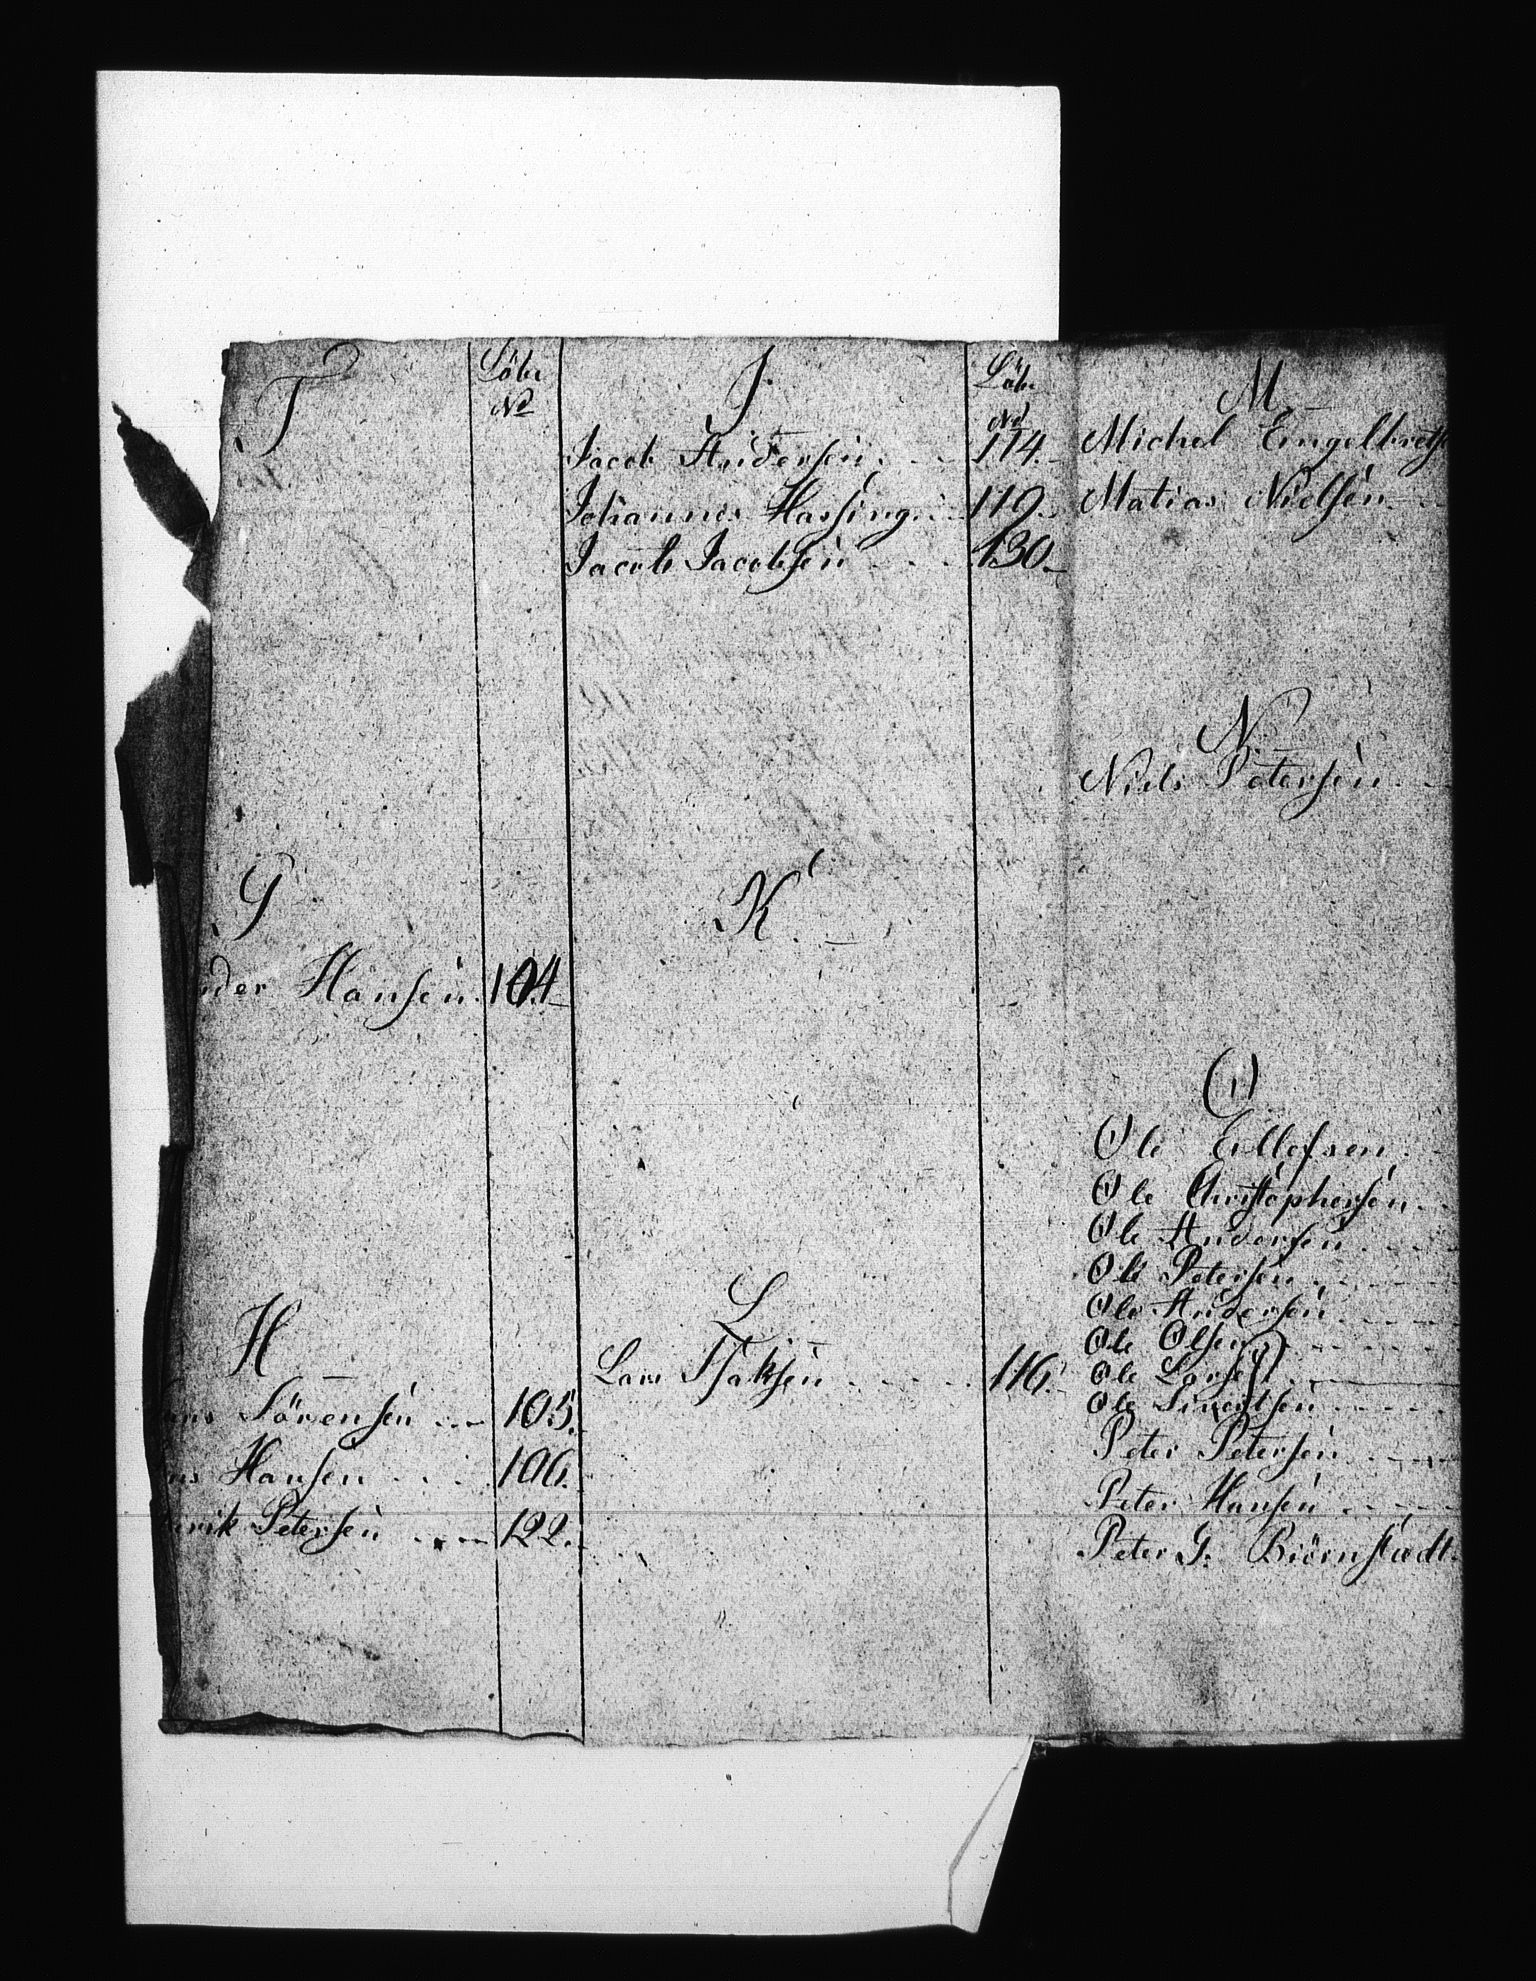 F
Löbe
No
G
der Hansen. 104
H
Sörensen 105.
Hansen 106.
erik Petersen 122.
J
Löbe
No
Jacob Andersen. 114.
Johannes Hassing. 119.
Jacob Jacobsen 130
K
L
Lars Isaksen 116.
M
Michel Engelbretse
Matias Nielsen
N
Niels Petersen
O
Ole Ellefsen
Ole Christophersen
Ole Andersen
Ole Petersen
Ole Andersen
Ole Olsen
Ole Larsen
Ole Sivertsen
Peter Petersen
Peter Hansen
Peter G. Biörnstædt